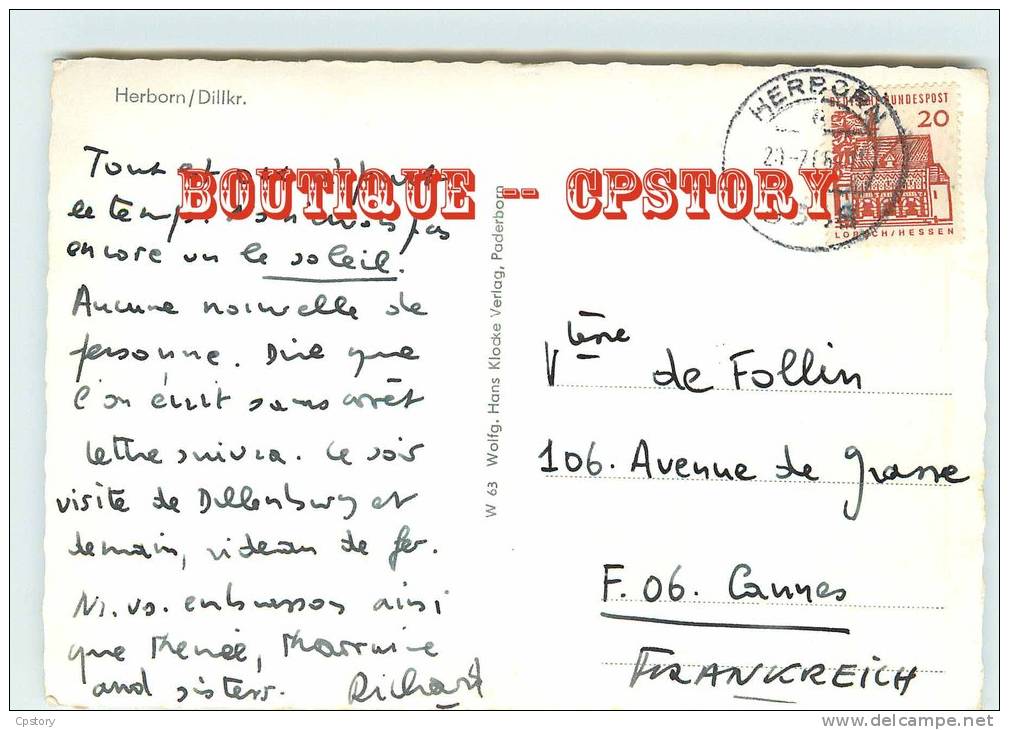 Herborn/Dillkr.
Tout
BOUTIQUE -- CPSTORY
le temps. pas
encore vu le soleil.
Aucune nouvelle de
personne. Dire que
l'on écrit sans arrêt
lettre suivra. Ce soir
visite de Dillenburg et
demain, rideau de fer.
Ns. vs. embrassons ainsi
que Memée, Marraine
and sisters. Richard
W 63 Wolfg. Hans Klocke Verlag, Paderborn
HERBORN
DEUTSCHE BUNDESPOST
20
LORSCH/HESSEN
Vtesse de Follin
106. Avenue de Grasse
F. 06. Cannes
FRANKREICH
Cpstory
www.delcampe.net